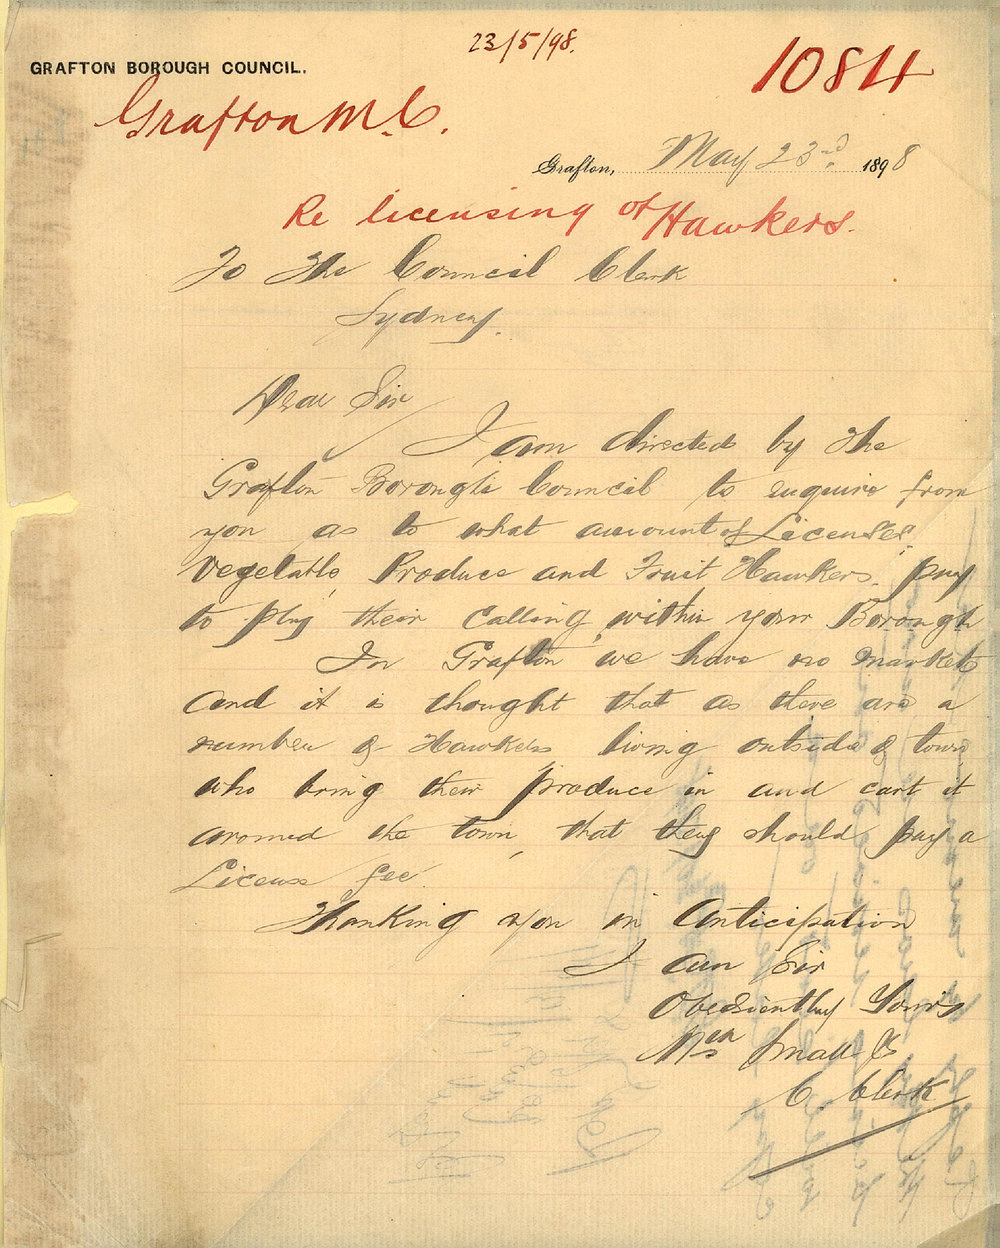 23/5/98.
1084
GRAFTON BOROUGH COUNCIL.
Grafton M.C.
Grafton, May 23rd 1898
Re licensing of Hawkers.
To The Council Clerk
Sydney.
Dear Sir
I am directed by the
Grafton Borough Council to enquire from
you as to what amount of Licenses
Vegetable, Produce and Fruit Hawkers, pay
to ply their calling within your Borough
In Grafton we have no market
and it is thought that as there are a
number of Hawkers living outside of town
who bring their produce in and cart it
around the town, that they should pay a
License fee.
Thanking you in anticipation
I am Sir
Obediently Yours
Small
C. Clerk